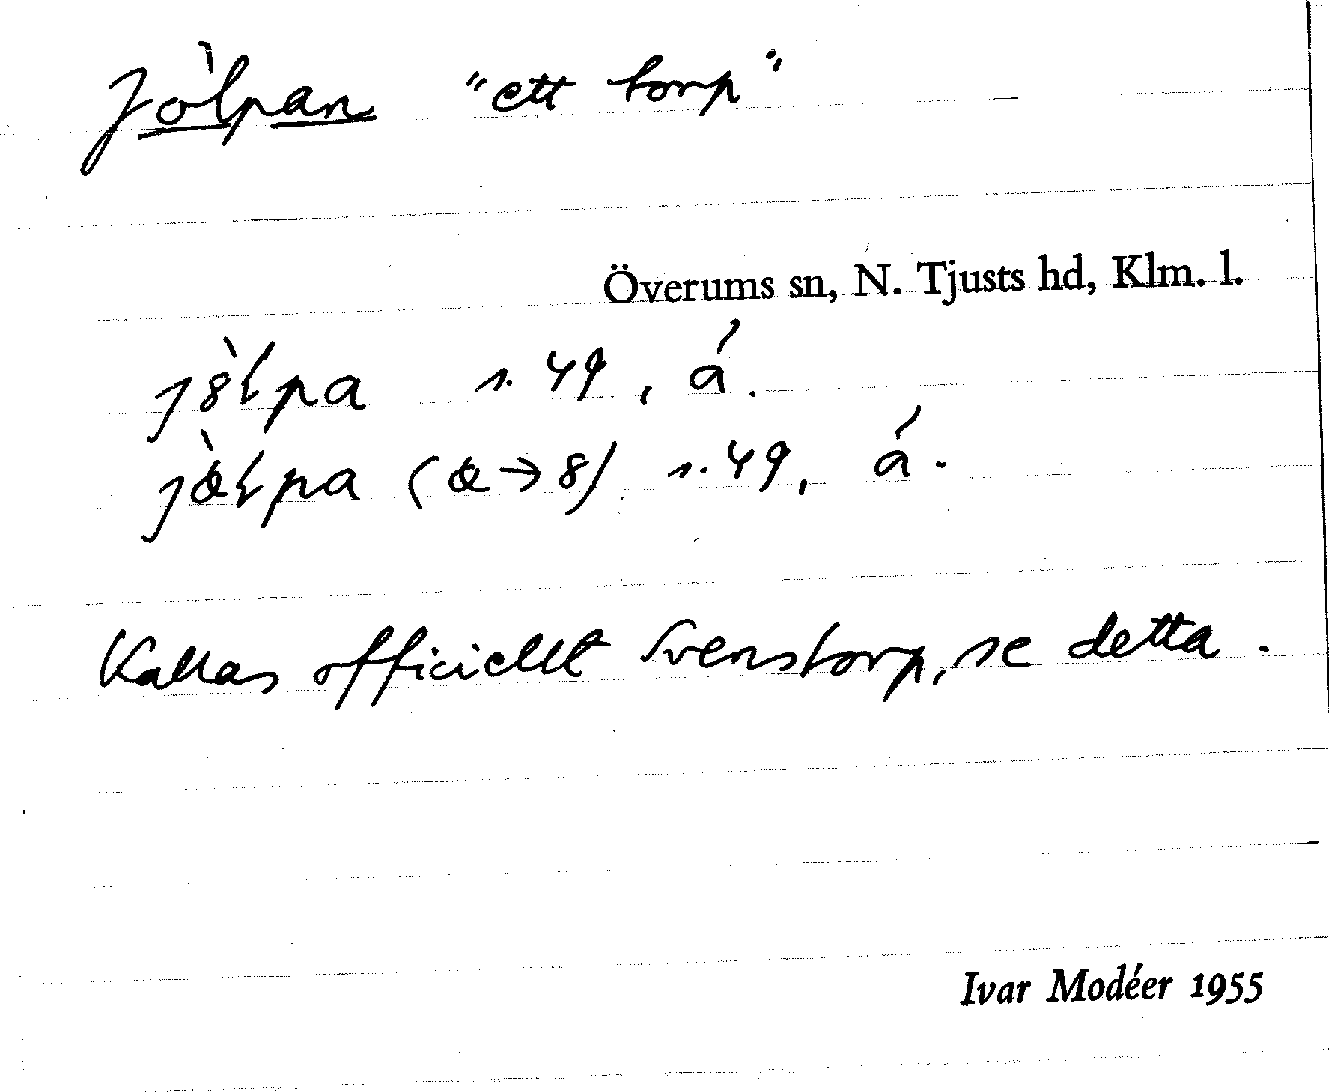 Jòlpan "ett torp"
Överums sn, N. Tjusts hd, Klm. l.
s. 49, á.
s. 49, á.
Kallas officiellt Svenstorp, se detta.
Ivar Modéer 1955